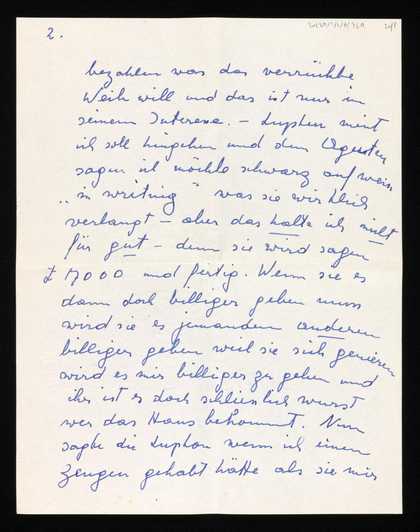 2.
bezahlen was das verrückte
Weib will und das ist nur in
seinem Interesse. – Lupton meint
ich soll hingehen und dem Agenten
sagen ich möchte schwarz auf weiss
„in writing" was sie wirklich
verlangt – aber das halte ich nicht
für gut – denn sie wird sagen
£ 17000 und fertig. Wenn sie es
dann doch billiger geben muss
wird sie es jemandem anderen
billiger geben weil sie sich genieren
wird es mir billiger zu geben und
ihr ist es doch schliesslich wurst
wer das Haus bekommt. Nun
sagte die Lupton wenn ich einen
Zeugen gehabt hätte als sie mir